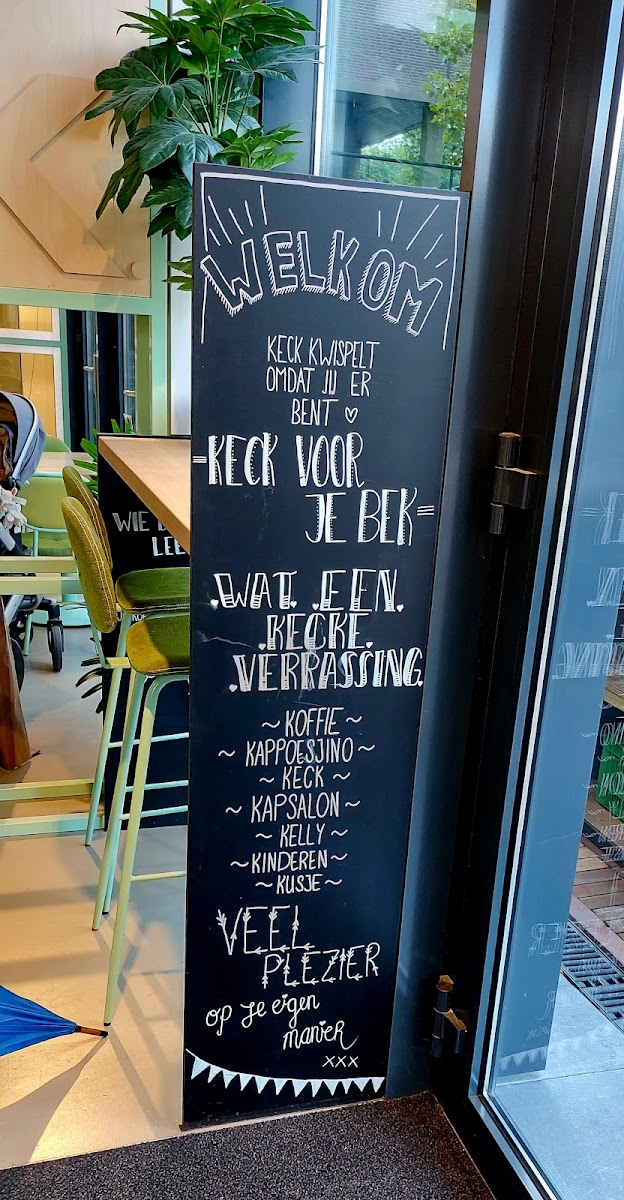 WELKOM
KECK KWISPELT
OMDAT JIJ ER
BENT ♡
=KECK VOOR
JE BEK=
.WAT. .EEN.
.KECKE.
.VERRASSING.
~ KOFFIE ~
~ KAPPOESJINO ~
~ KECK ~
~ KAPSALON ~
~ KELLY ~
~ KINDEREN ~
~ KUSJE ~
VEEL
PLEZIER
op je eigen
manier
xxx
WIE
LEE